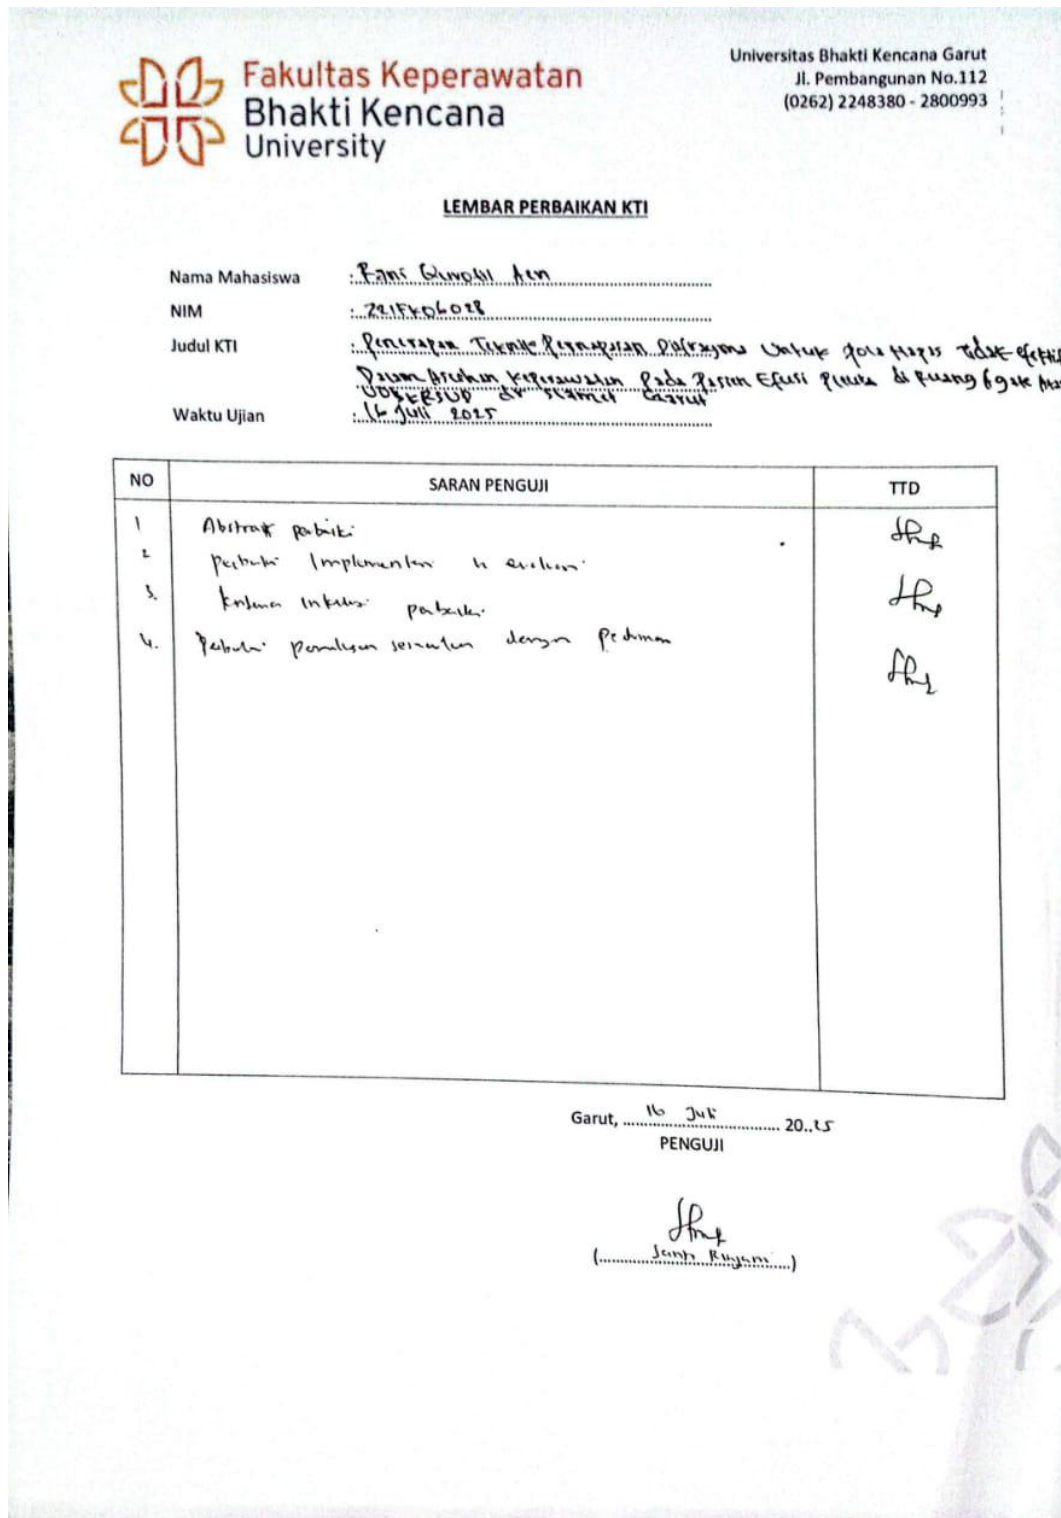 Fakultas Keperawatan
Bhakti Kencana
University
Universitas Bhakti Kencana Garut
Jl. Pembangunan No.112
(0262) 2248380 - 2800993
LEMBAR PERBAIKAN KTI
Nama Mahasiswa : Fani Aen
NIM : 221FK06028
Judul KTI : Penerapan Teknik Pernapasan Diafragma Untuk pola Napas tidak efektif
Dalam Asuhan Keperawatan Pada Pasien Efusi Pleura di Ruang
dr Slamet Garut
Waktu Ujian : 16 Juli 2025
NO SARAN PENGUJI TTD
1 Abstrak perbaiki
2 perbaiki Implementasi
3. perbaiki
4. Perbaiki penulisan sesuaikan dengan Pedoman
Garut, 16 Juli 20..25
PENGUJI
(...)